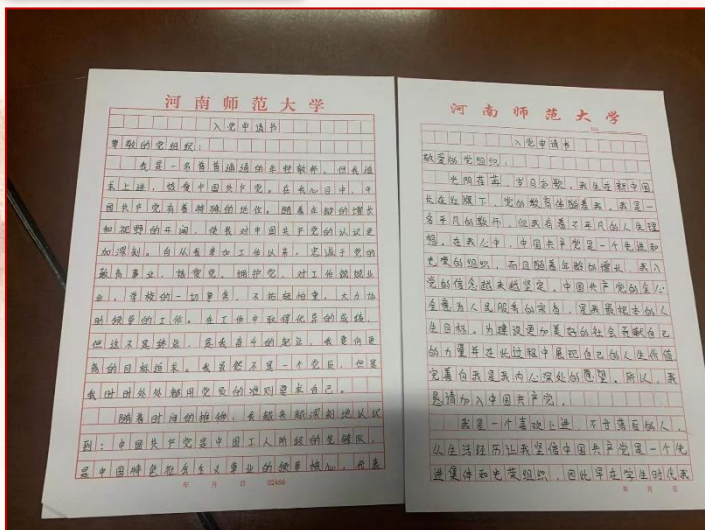 河南师范大学
入党申请书
尊敬的党组织:
我是一名普普通通的年轻教师,但我追
求上进,信奉中国共产党。在我心目中,中
国共产党有着特殊的地位。随着年龄的增长
和视野的开阔,使我对中国共产党的认识更
加深刻。自从我参加工作以来,忠诚于党的
教育事业,热爱党,拥护党,对工作兢兢业
业,学校的一切事务,不拈轻怕重,大力协
助领导的工作。在工作中取得优异的成绩,
但这不是终点,是我奋斗的起点,我要向更
高的目标迈来。我虽然不是一个党员,但是
我时时处处都用党员的准则要求自己。
随着时间的推移,我越来越深刻地认识
到:中国共产党是中国工人阶级的先锋队,
是中国特色社会主义事业的领导核心,代表
年 月 日 02456
河南师范大学
入党申请书
敬爱的党组织:
光阴荏苒,岁月如歌,我生在新中国
长在红旗下,党的教育伴随着我。我是一
名平凡的教师,但我有着不平凡的人生理
想。在我心中,中国共产党是一个先进和
光荣的组织,而且随着年龄的增长,我入
党的信念越来越坚定。中国共产党的全心
全意为人民服务的宗旨,是我最根本的人
生目标。为建设更加美好的社会贡献自己
的力量并在此过程中展现自己的人生价值
完善自我是我内心深处的愿望。所以,我
恳请加入中国共产党。
我是一个喜欢上进,不甘落后的人,
从生活经历让我坚信中国共产党是一个先
进集体和光荣组织,因此早在学生时代我
年 月 日